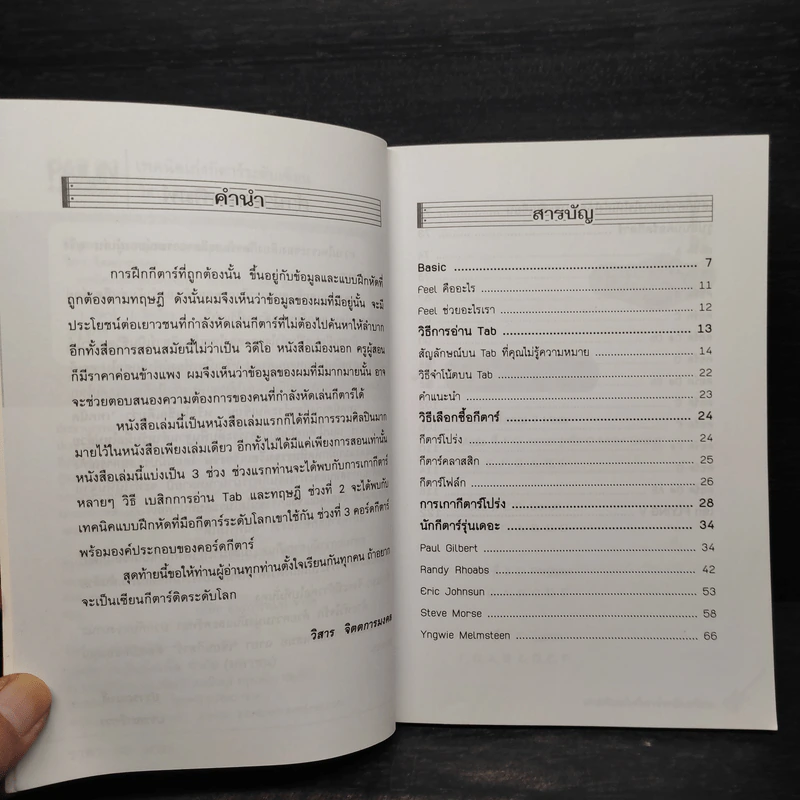 คำนำ
การฝึกกีตาร์ที่ถูกต้องนั้น ขึ้นอยู่กับข้อมูลและแบบฝึกหัดที่
ถูกต้องตามทฤษฎี ดังนั้นผมจึงเห็นว่าข้อมูลของผมที่มีอยู่นั้น จะมี
ประโยชน์ต่อเยาวชนที่กำลังหัดเล่นกีตาร์ที่ไม่ต้องไปค้นหาให้ลำบาก
อีกทั้งสื่อการสอนสมัยนี้ไม่ว่าเป็น วิดีโอ หนังสือเมืองนอก ครูผู้สอน
ก็มีราคาค่อนข้างแพง ผมจึงเห็นว่าข้อมูลของผมที่มีมากมายนั้น อาจ
จะช่วยตอบสนองความต้องการของคนที่กำลังหัดเล่นกีตาร์ได้
หนังสือเล่มนี้เป็นหนังสือเล่มแรกก็ได้ที่มีการรวมศิลปินมาก
มายไว้ในหนังสือเพียงเล่มเดียว อีกทั้งไม่ได้มีแค่เพียงการสอนเท่านั้น
หนังสือเล่มนี้แบ่งเป็น 3 ช่วง ช่วงแรกท่านจะได้พบกับการเกากีตาร์
หลายๆ วิธี เบสิกการอ่าน Tab และทฤษฎี ช่วงที่ 2 จะได้พบกับ
เทคนิคแบบฝึกหัดที่มือกีตาร์ระดับโลกเขาใช้กัน ช่วงที่ 3 คอร์ดกีตาร์
พร้อมองค์ประกอบของคอร์ดกีตาร์
สุดท้ายนี้ขอให้ท่านผู้อ่านทุกท่านตั้งใจเรียนกันทุกคน ถ้าอยาก
จะเป็นเซียนกีตาร์ติดระดับโลก
วิสาร จิตตการมงคล
สารบัญ
Basic 7
Feel คืออะไร 11
Feel ช่วยอะไรเรา 12
วิธีการอ่าน Tab 13
สัญลักษณ์บน Tab ที่คุณไม่รู้ความหมาย 14
วิธีจำโน้ตบน Tab 22
คำแนะนำ 23
วิธีเลือกซื้อกีตาร์ 24
กีตาร์โปร่ง 24
กีตาร์คลาสสิก 25
กีตาร์โฟล์ก 26
การเกากีตาร์โปร่ง 28
นักกีตาร์รุ่นเดอะ 34
Paul Gilbert 34
Randy Rhoabs 42
Eric Johnsun 53
Steve Morse 58
Yngwie Melmsteen 66